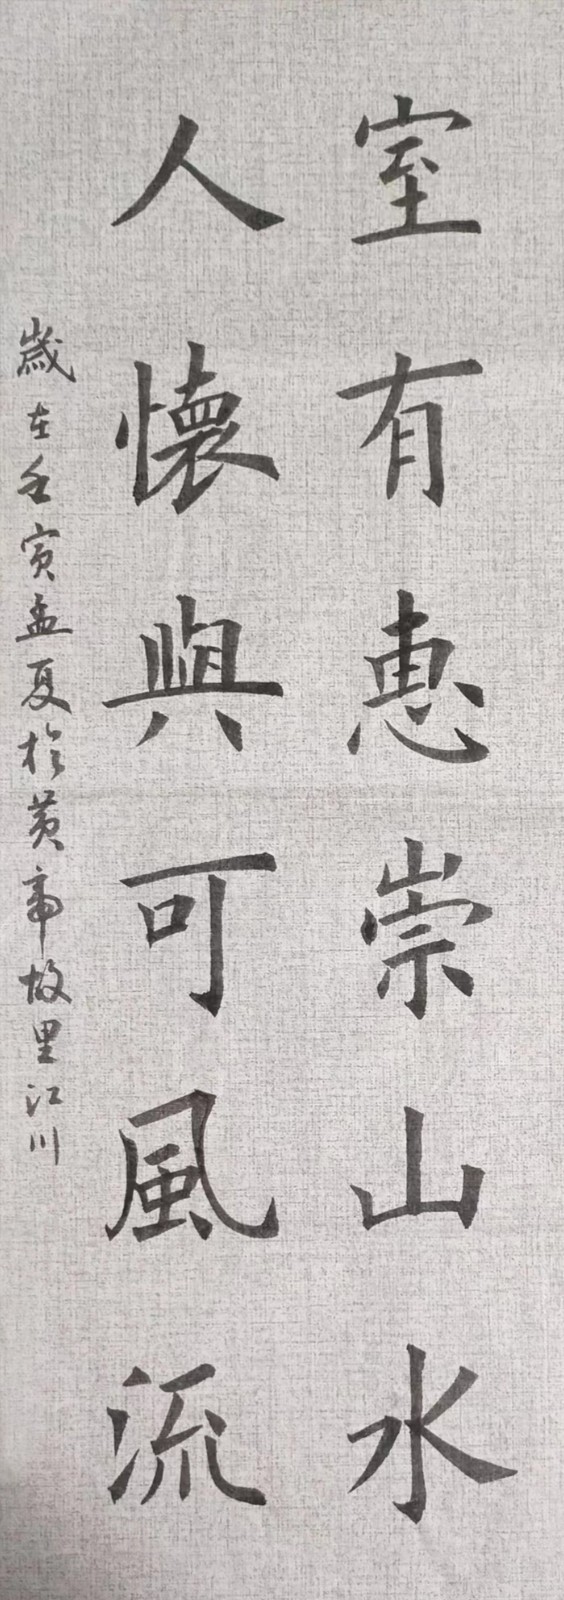 室有惠崇山水
人懷與可風流
歲在壬寅孟夏於黄帝故里江川